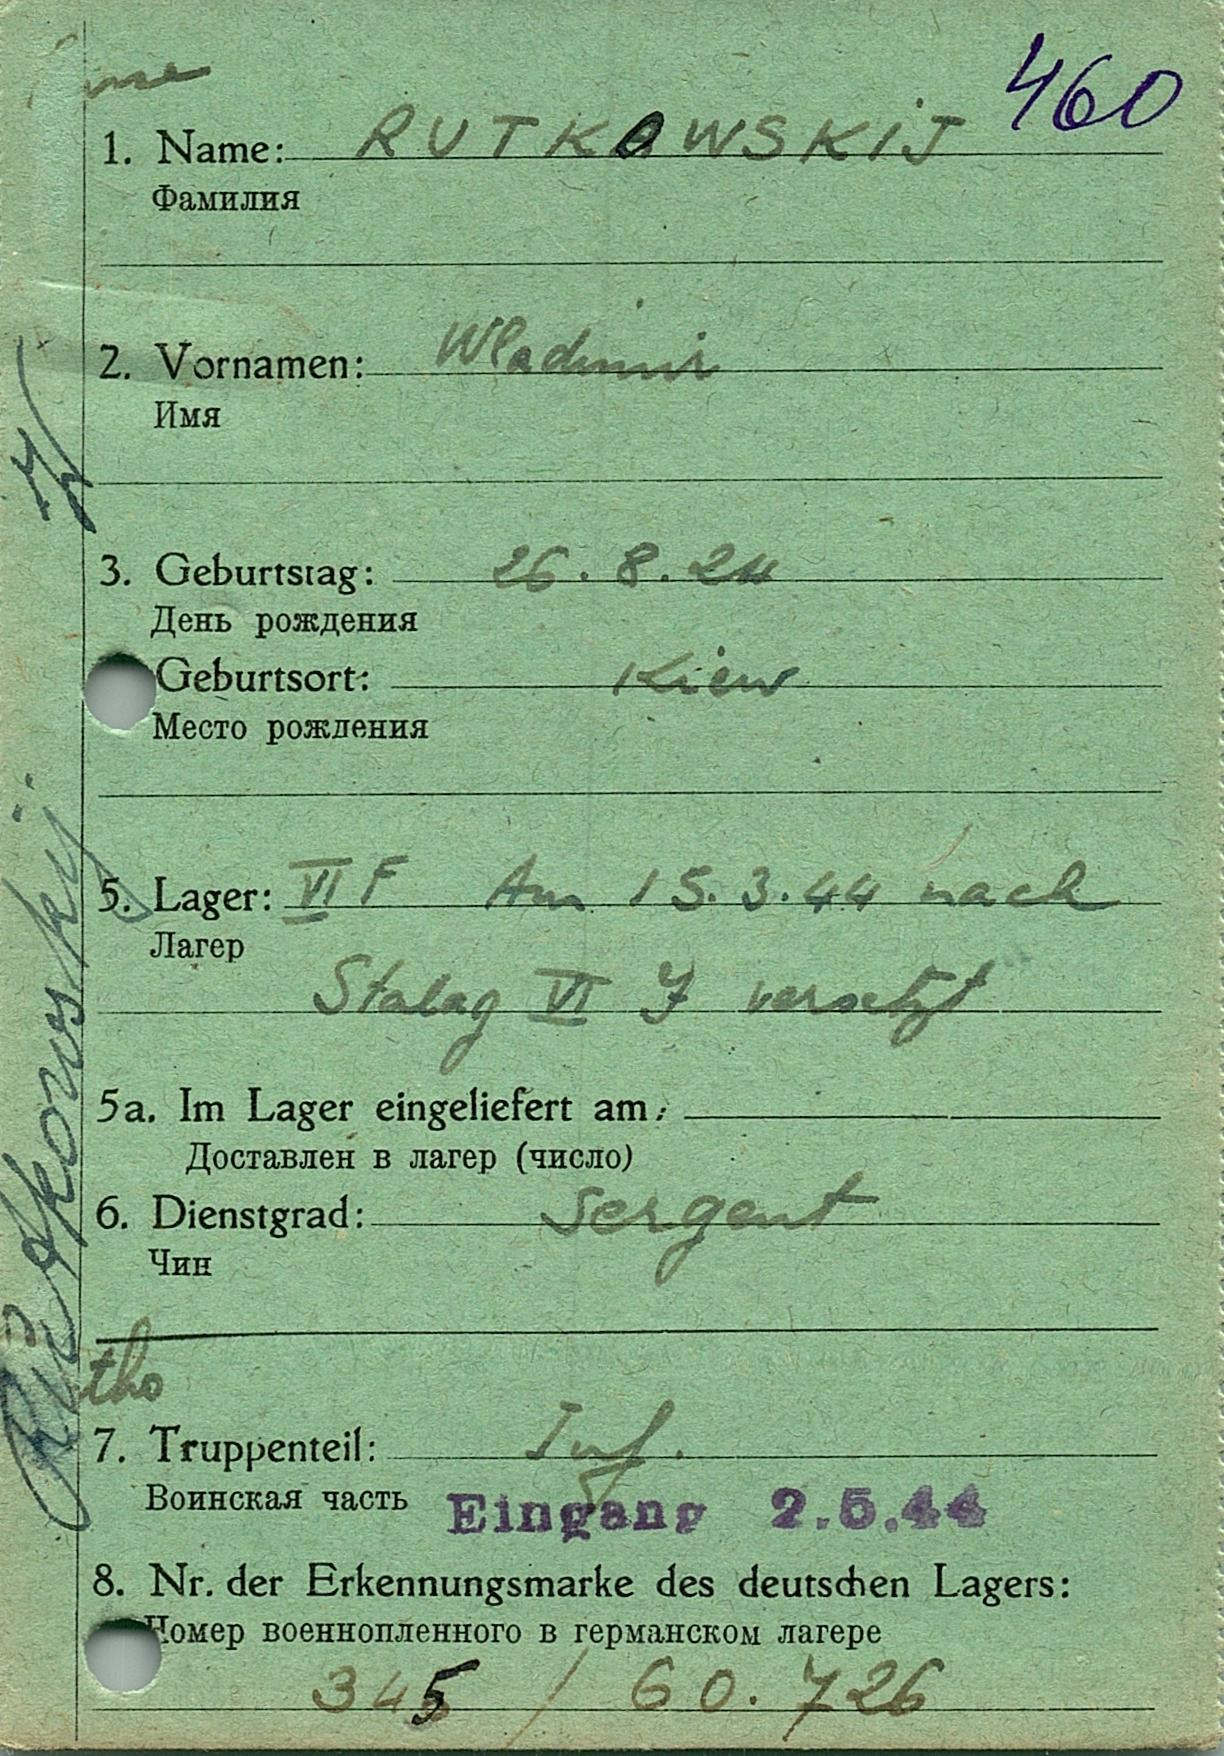 460
1. Name: RUTKOWSKIJ
Фамилия
2. Vornamen: Wladimir
Имя
3. Geburtstag: 26.8.24
День рождения
Geburtsort: Kiew
Место рождения
5. Lager: VI F Am 15.3.44 nach
Лагер
Stalag VI J versetzt
5a. Im Lager eingeliefert am:
Доставлен в лагер (число)
6. Dienstgrad: Sergent
Чин
tho
7. Truppenteil: Inf.
Воинская часть
Eingang 2.5.44
8. Nr. der Erkennungsmarke des deutschen Lagers:
Номер военнопленного в германском лагере
345 / 60.726
Rutkowskij